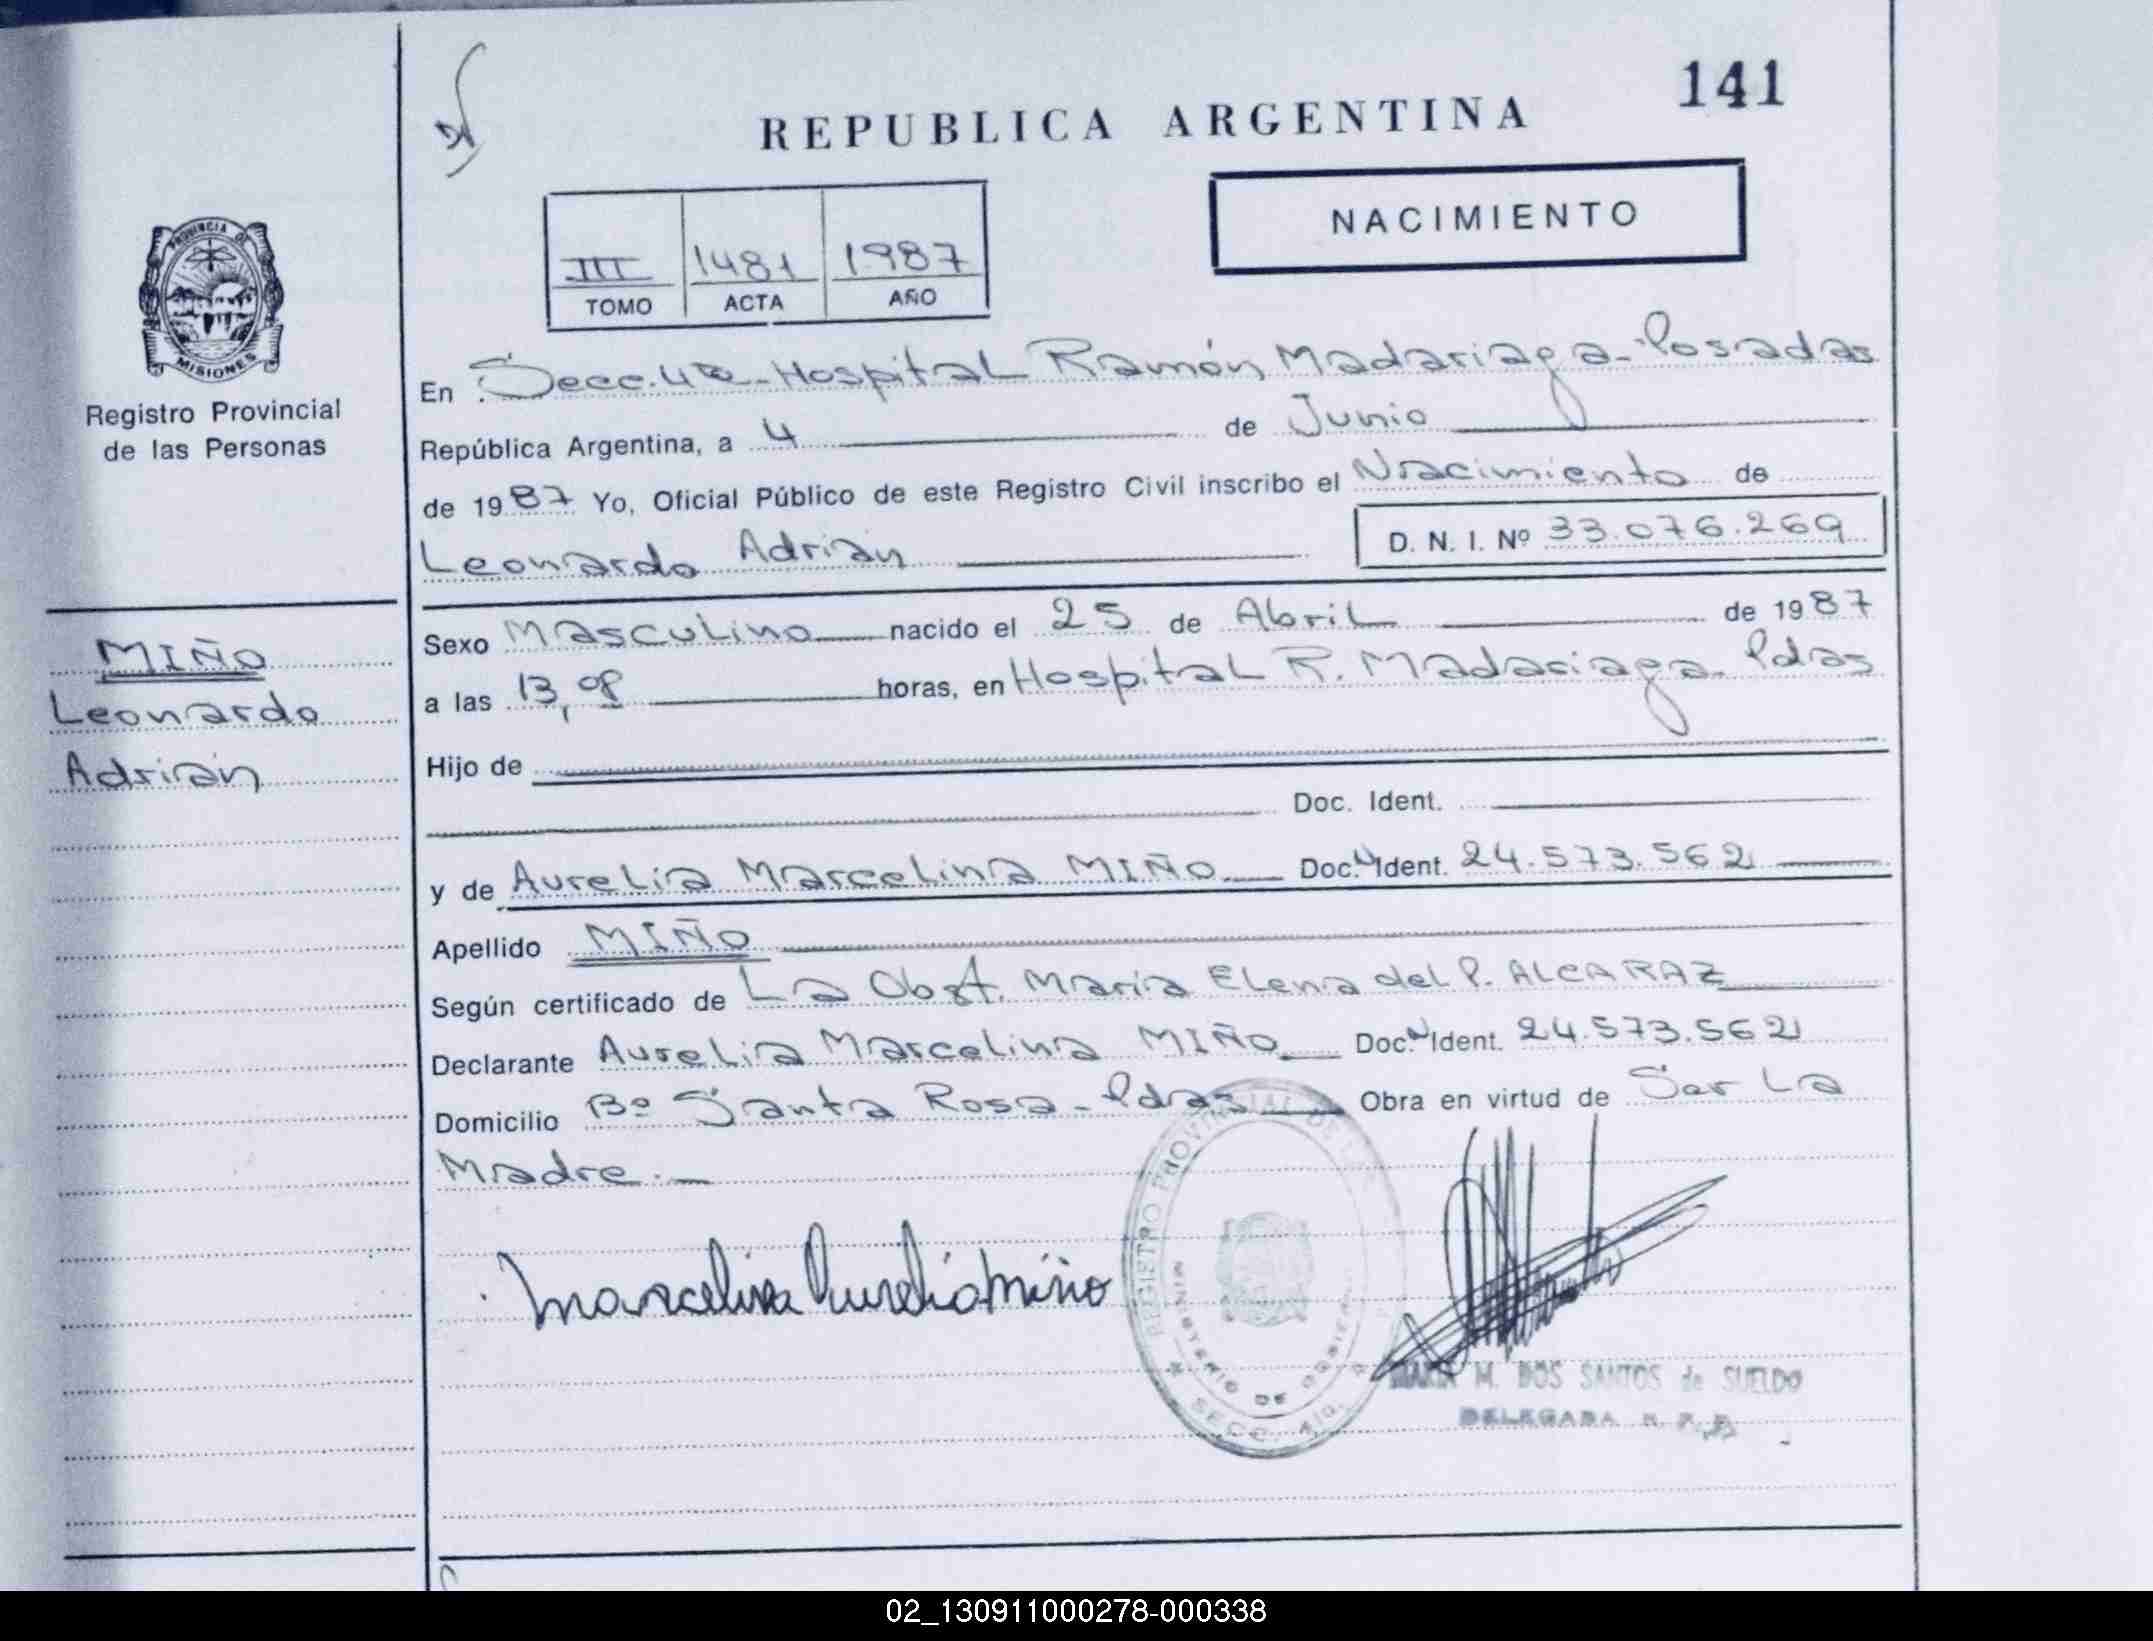 141
REPUBLICA ARGENTINA
NACIMIENTO
III 1481 1987
TOMO ACTA AÑO
PROVINCIA DE
MISIONES
Registro Provincial
de las Personas
MIÑO
Leonardo
Adrián
En Secc. 4ta - Hospital Ramón Madariaga - Posadas
República Argentina, a 4 de Junio
de 1987 Yo, Oficial Público de este Registro Civil inscribo el Nacimiento de
Leonardo Adrián D. N. I. Nº 33.076.269
Sexo Masculino nacido el 25 de Abril de 1987
a las 13,08 horas, en Hospital R. Madariaga - Pdas
Hijo de
Doc. Ident.
y de Aurelia Marcelina MIÑO Doc. Ident. 24.573.562
Apellido MIÑO
Según certificado de La Obst. María Elena del P. ALCARAZ
Declarante Aurelia Marcelina MIÑO Doc. Ident. 24.573.562
Domicilio Bº Santa Rosa - Pdas Obra en virtud de Ser La
Madre.-
Marcelina Aurelia Miño
REGISTRO PROVINCIAL DE LAS
MINISTERIO DE GOBIER
SECC. 4ta.
MARIA M. DOS SANTOS de SUELDO
DELEGADA R. P. P.
02_130911000278-000338